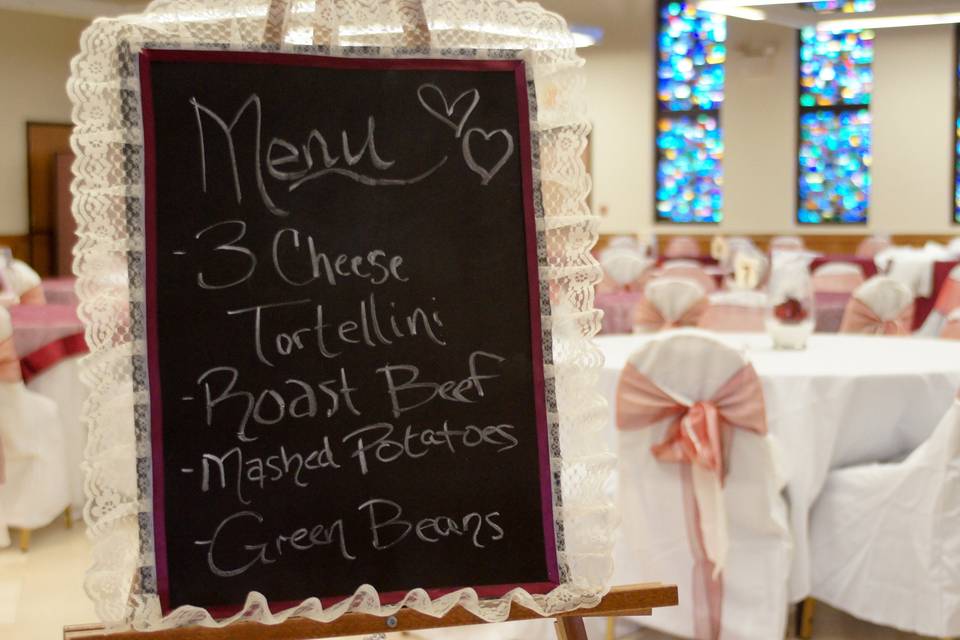 Menu
- 3 Cheese
Tortellini
- Roast Beef
- Mashed Potatoes
- Green Beans